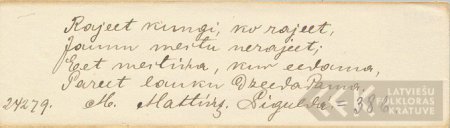 Rajeet kungi, ko rajeet,
Jaunu mestu nerajeet;
Eet mestiņa, kur eedama,
Pareet lauku Dzeedadama.
24279. M. Mattiņś. Sigulda. = 386
LATVIEŠU
FOLKLORAS
KRĀTUVE